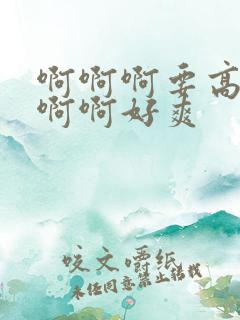 啊啊啊要高
啊啊好爽
咬文嚼纸
未经同意禁止转载